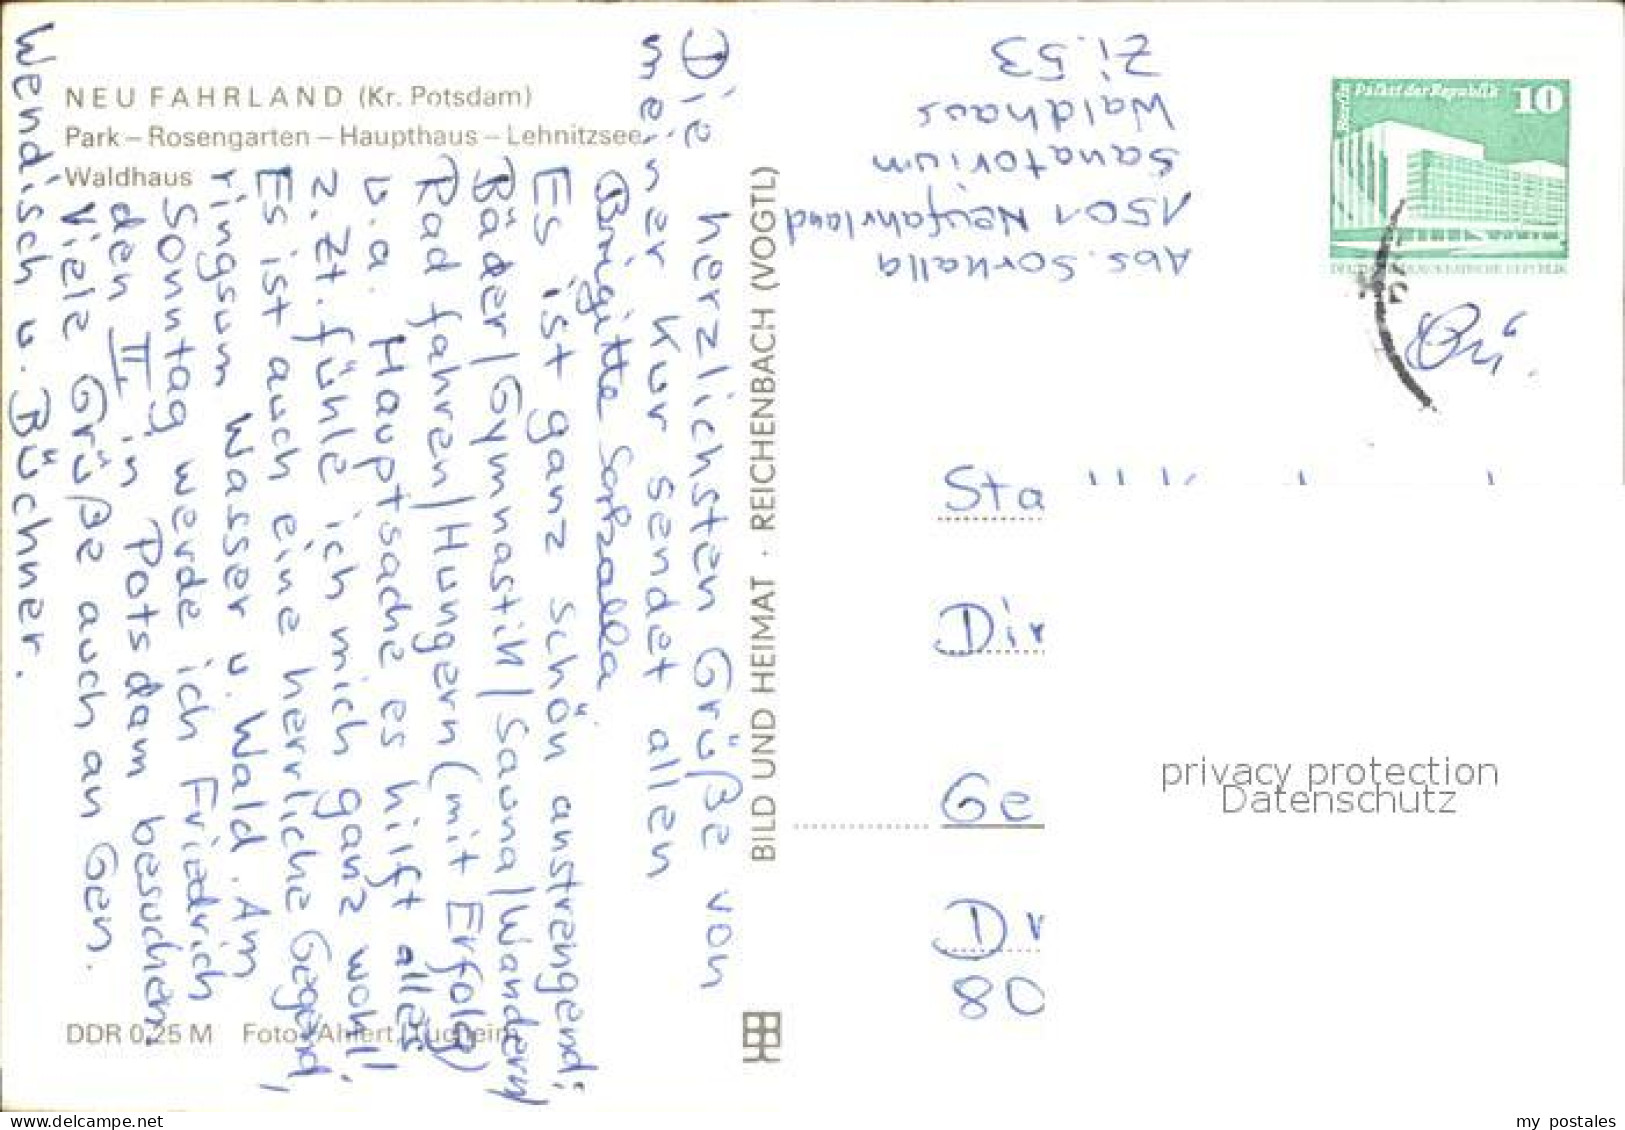 NEU FAHRLAND (Kr. Potsdam)
Park – Rosengarten – Haupthaus – Lehnitzsee
Waldhaus
Die herzlichsten Grüße von
meiner Kur sendet allen
Brigitte Sorkalla
Es ist ganz schön anstrengend;
Bäder/Gymnastik/Sauna/Wandern/
Rad fahren/Hungern (mit Erfolg)
u.a. Hauptsache es hilft alles
z.Zt. fühle ich mich ganz wohl!
Es ist auch eine herrliche Gegend,
ringsum Wasser u. Wald. Am
Sonntag werde ich Friedrich
den II. in Potsdam besuchen.
Viele Grüße auch an Gen.
Wendisch u. Büchner.
DDR 0,25 M Foto: Ahlert,
BILD UND HEIMAT · REICHENBACH (VOGTL)
Abs. Sorkalla
1501 Neufahrland
Sanatorium
Waldhaus
Zi. 53
Berlin
Palast der Republik 10
DEUTSCHE DEMOKRATISCHE REPUBLIK
Sta
Dir
Ge
Dr
80
privacy protection
Datenschutz
my postales